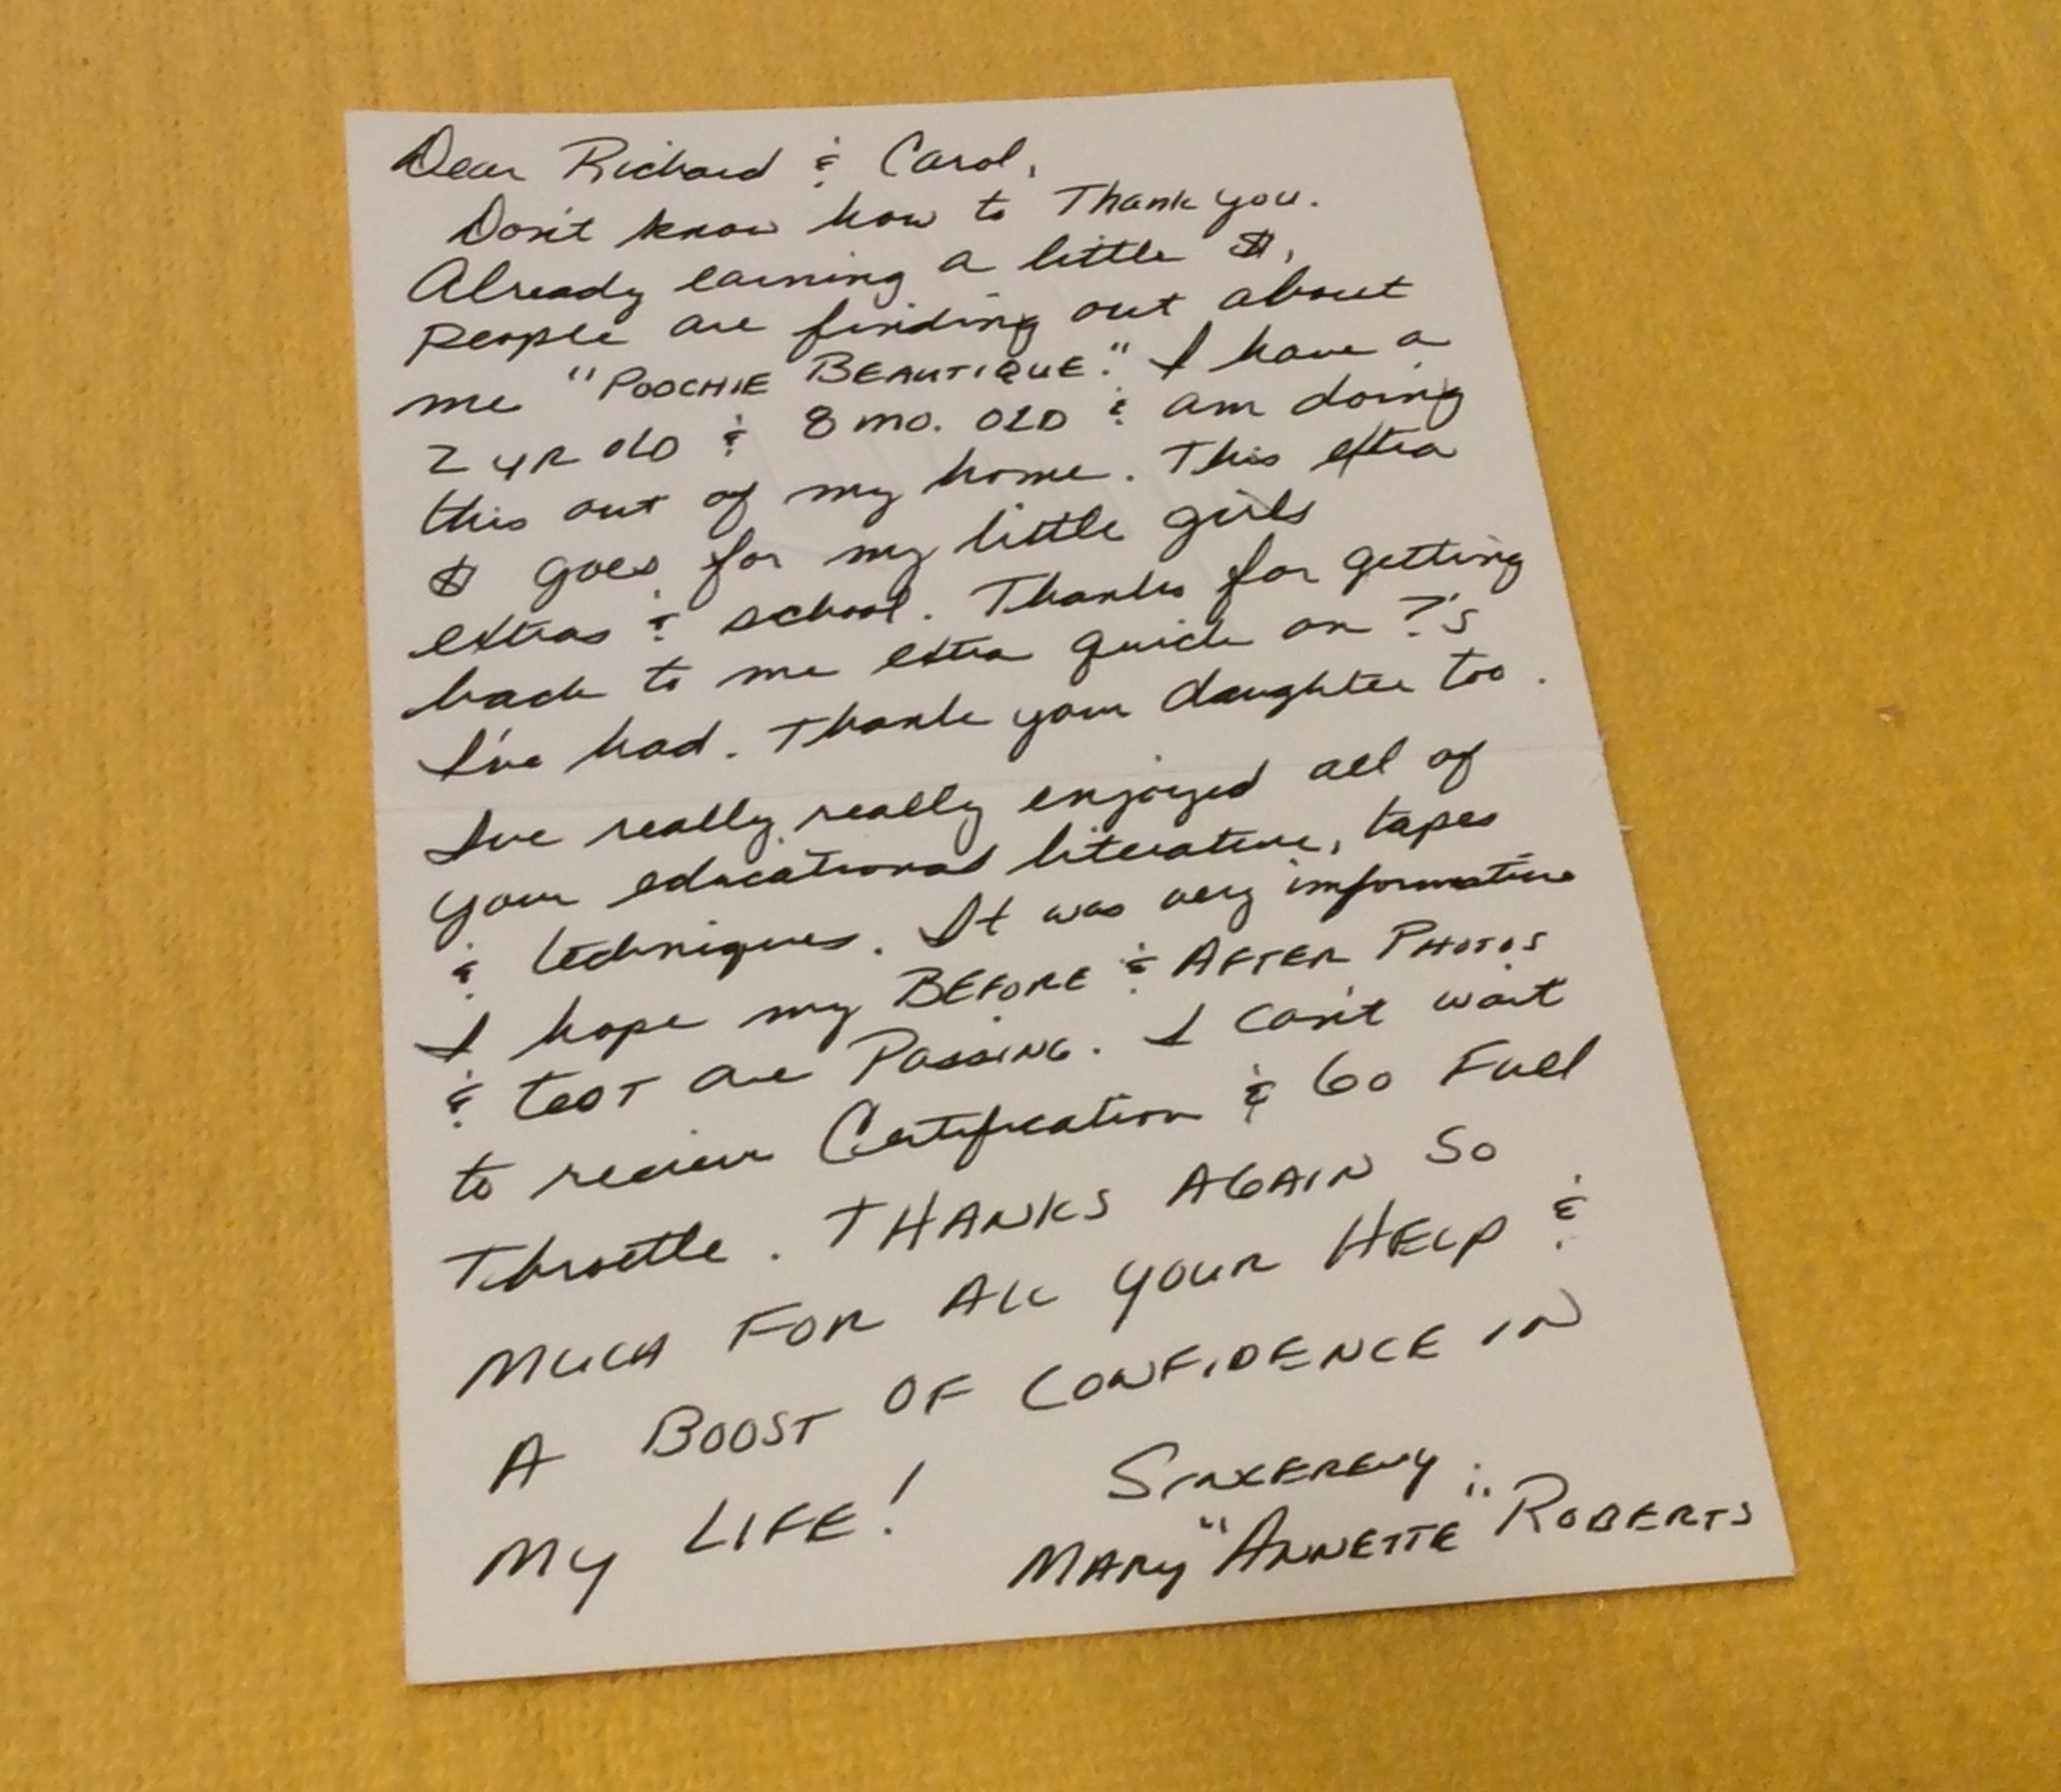 Dear Richard & Carol,
Don't know how to Thank you.
Already earning a little $,
People are finding out about
me "POOCHIE BEAUTIQUE." I have a
2 yR old & 8 mo. OLD & am doing
this out of my home. This extra
$ goes for my little girls
extras & school. Thanks for getting
back to me extra quick on ?'s
I've had. Thank your daughter too.
I've really, really enjoyed all of
your educational literature, tapes
& techniques. It was very informative
I hope my BEFORE & AFTER PHOTOS
& test are PassING. I can't wait
to recieve Certification & Go Full
Throttle. THANKS AGAIN So
MUCH FOR ALL YOUR HELP &
A BOOST OF CONFIDENCE IN
MY LIFE!
SINCERELY,
MARY "ANNETTE" ROBERTS